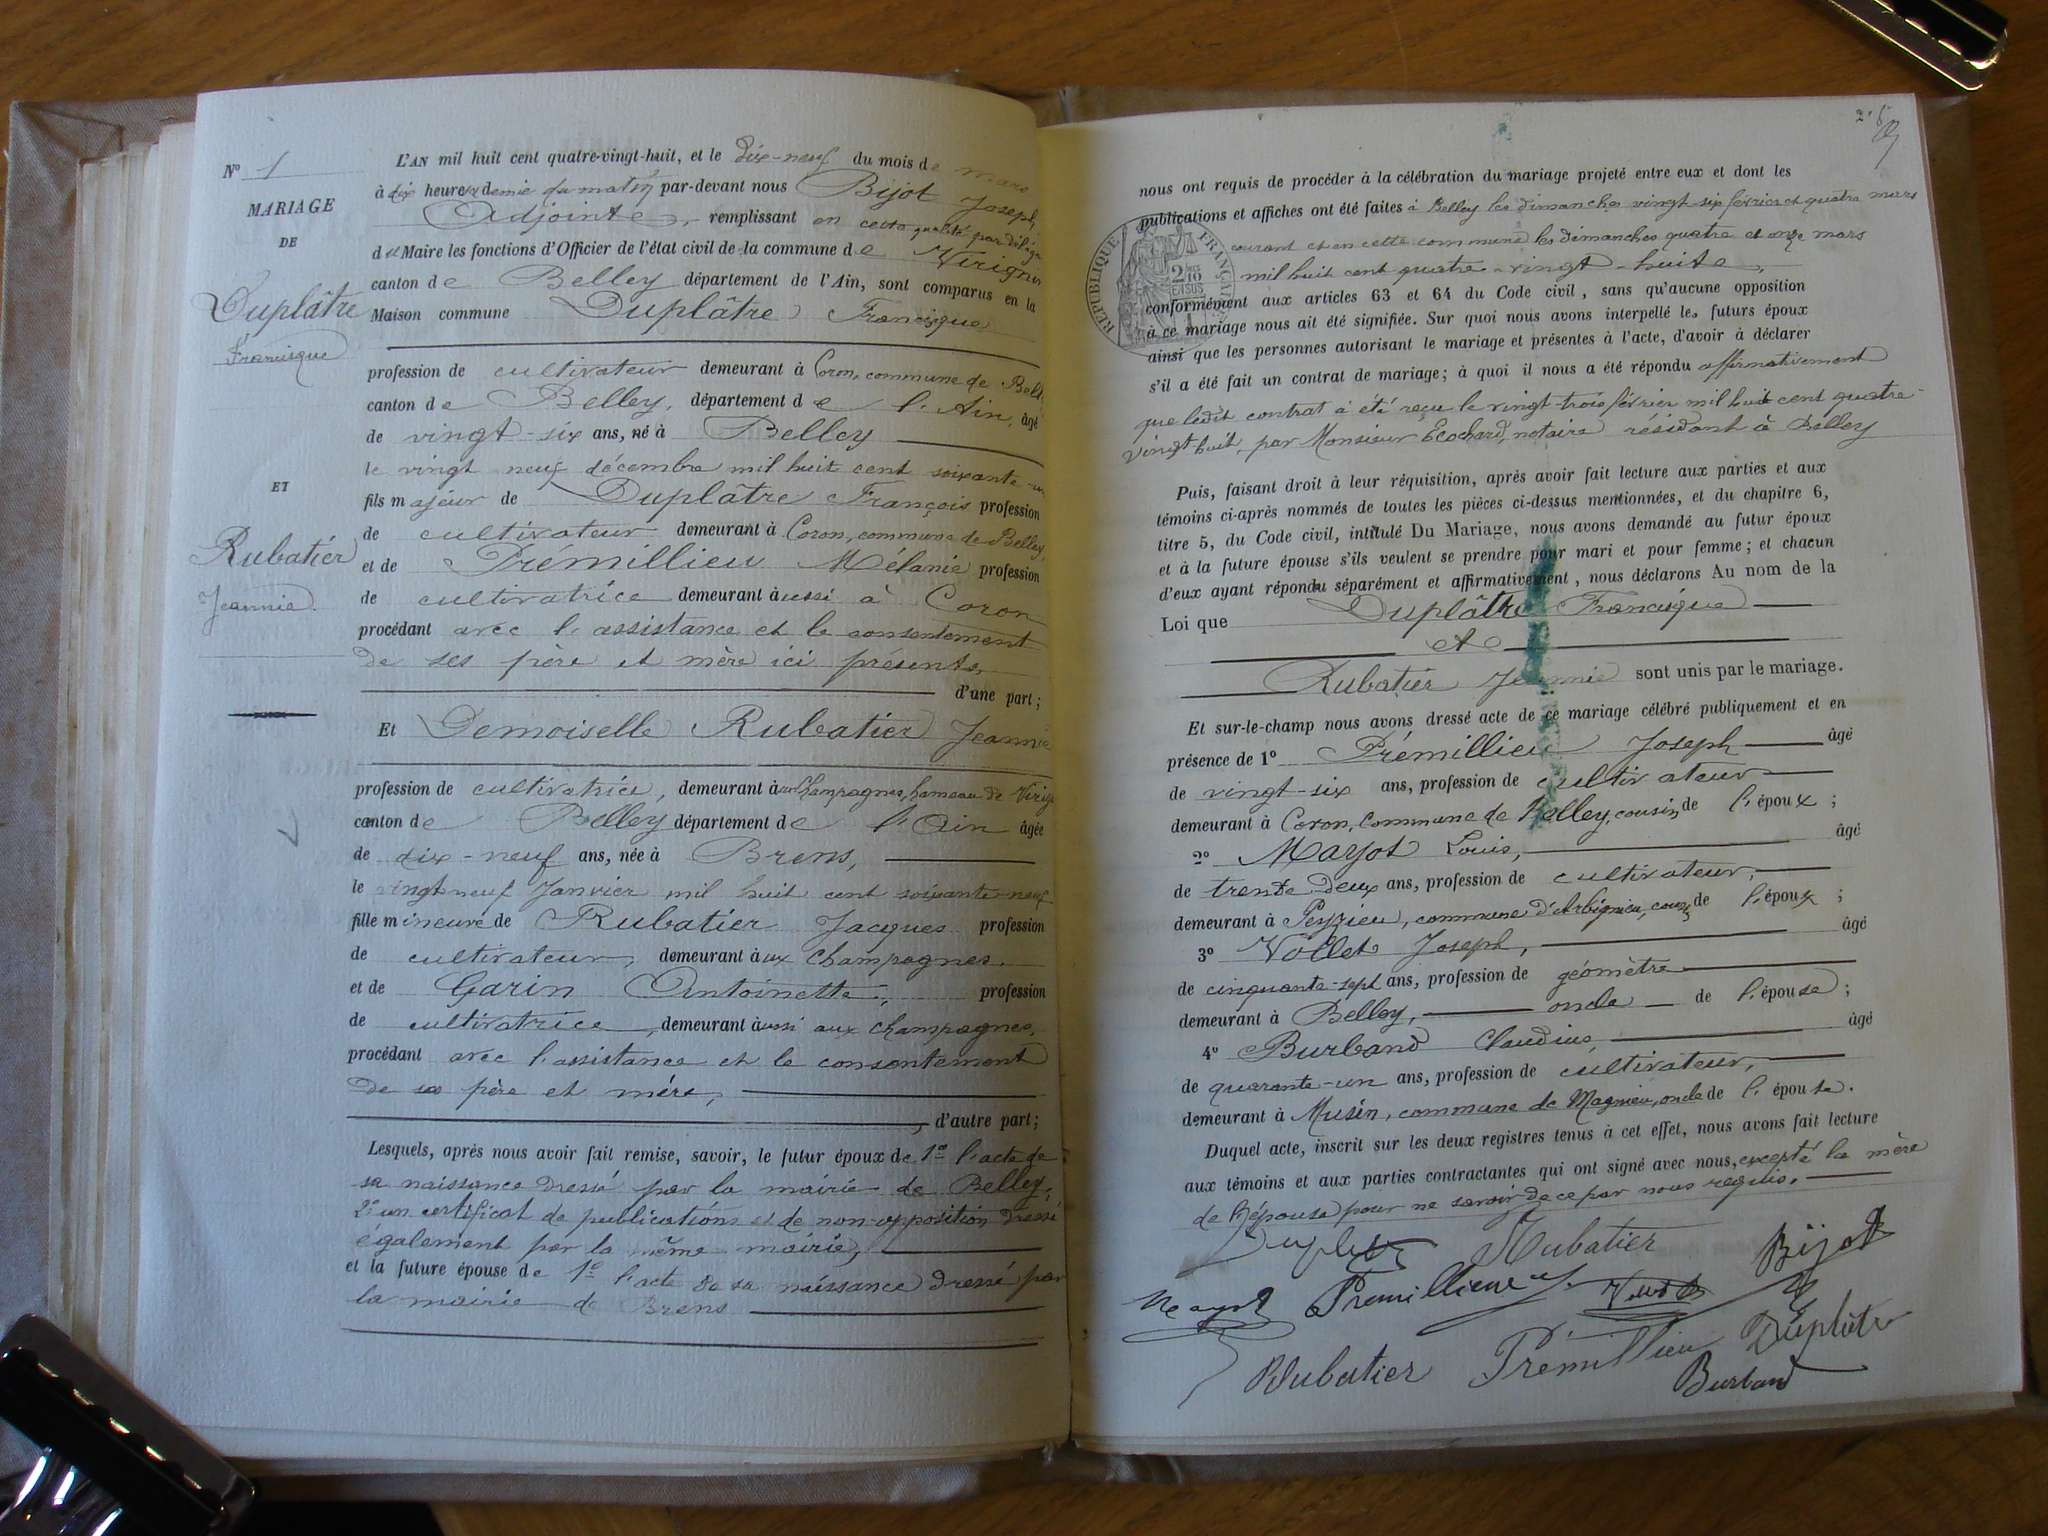 N° 1
MARIAGE
DE
Duplâtre
Francisque
ET
Rubatier
Jeannie.
L'AN mil huit cent quatre-vingt-huit, et le dix-neuf du mois de mars
à dix heures demie du matin par-devant nous Bijot Joseph,
Adjointe, remplissant en cette qualité par délég
du Maire les fonctions d'Officier de l'état civil de la commune de Virignin
canton de Belley département de l'Ain, sont comparus en la
Maison commune Duplâtre Francisque
profession de cultivateur demeurant à Coron, commune de Belle
canton de Belley, département de l'Ain, âgé
de vingt-six ans, né à Belley
le vingt neuf décembre mil huit cent soixante-un
fils majeur de Duplâtre François profession
de cultivateur demeurant à Coron, commune de Belley,
et de Prémillieu Mélanie profession
de cultivatrice demeurant aussi à Coron
procédant avec l'assistance et le consentement
de ses père et mère ici présents,
d'une part;
Et Demoiselle Rubatier Jeannie
profession de cultivatrice, demeurant aux Champagnes, hameau de Virig
canton de Belley département de l'Ain âgée
de dix-neuf ans, née à Brens,
le vingt neuf Janvier mil huit cent soixante-neuf
fille mineure de Rubatier Jacques profession
de cultivateur, demeurant aux Champagnes.
et de Garin Antoinette, profession
de cultivatrice, demeurant aussi aux Champagnes,
procédant avec l'assistance et le consentement
de se père et mère,
d'autre part;
Lesquels, après nous avoir fait remise, savoir, le futur époux de 1° l'acte de
sa naissance dressé par la mairie de Belley,
2° un certificat de publications et de non-opposition dressé
également par la même mairie,
et la future épouse de 1° l'acte de sa naissance dressé par
la mairie de Brens
nous ont requis de procéder à la célébration du mariage projeté entre eux et dont les
publications et affiches ont été faites à Belley les dimanches vingt-six février et quatre mars
courant et en cette commune les dimanches quatre et onze mars
mil huit cent quatre-vingt-huit,
RÉPUBLIQUE FRANÇAISE
2/10 EN SUS
conformément aux articles 63 et 64 du Code civil, sans qu'aucune opposition
à ce mariage nous ait été signifiée. Sur quoi nous avons interpellé les futurs époux
ainsi que les personnes autorisant le mariage et présentes à l'acte, d'avoir à déclarer
s'il a été fait un contrat de mariage; à quoi il nous a été répondu affirmativement
que ledit contrat a été reçu le vingt-trois février mil huit cent quatre-
vingt huit, par Monsieur Ecochard, notaire résidant à Belley
Puis, faisant droit à leur réquisition, après avoir fait lecture aux parties et aux
témoins ci-après nommés de toutes les pièces ci-dessus mentionnées, et du chapitre 6,
titre 5, du Code civil, intitulé Du Mariage, nous avons demandé au futur époux
et à la future épouse s'ils veulent se prendre pour mari et pour femme; et chacun
d'eux ayant répondu séparément et affirmativement, nous déclarons Au nom de la
Loi que Duplâtre Francisque
et
Rubatier Jeannie sont unis par le mariage.
Et sur-le-champ nous avons dressé acte de ce mariage célébré publiquement et en
présence de 1° Prémillieu Joseph âgé
de vingt-six ans, profession de cultivateur
demeurant à Coron, commune de Belley, cousin de l'époux;
2° Mayot Louis, âgé
de trente-deux ans, profession de cultivateur,
demeurant à Peyzieu, commune d'Arbignieu, cousin de l'époux;
3° Vollet Joseph, âgé
de cinquante-sept ans, profession de géomètre
demeurant à Belley, oncle de l'épouse;
4° Burband Claudius, âgé
de quarante-un ans, profession de cultivateur,
demeurant à Musin, commune de Magnieu, oncle de l'épouse.
Duquel acte, inscrit sur les deux registres tenus à cet effet, nous avons fait lecture
aux témoins et aux parties contractantes qui ont signé avec nous, excepté la mère
de l'épouse pour ne savoir de ce par nous requis.
Rubatier Bijot
Mayot Prémillieu
Rubatier Prémillieu Duplâtre
Burband